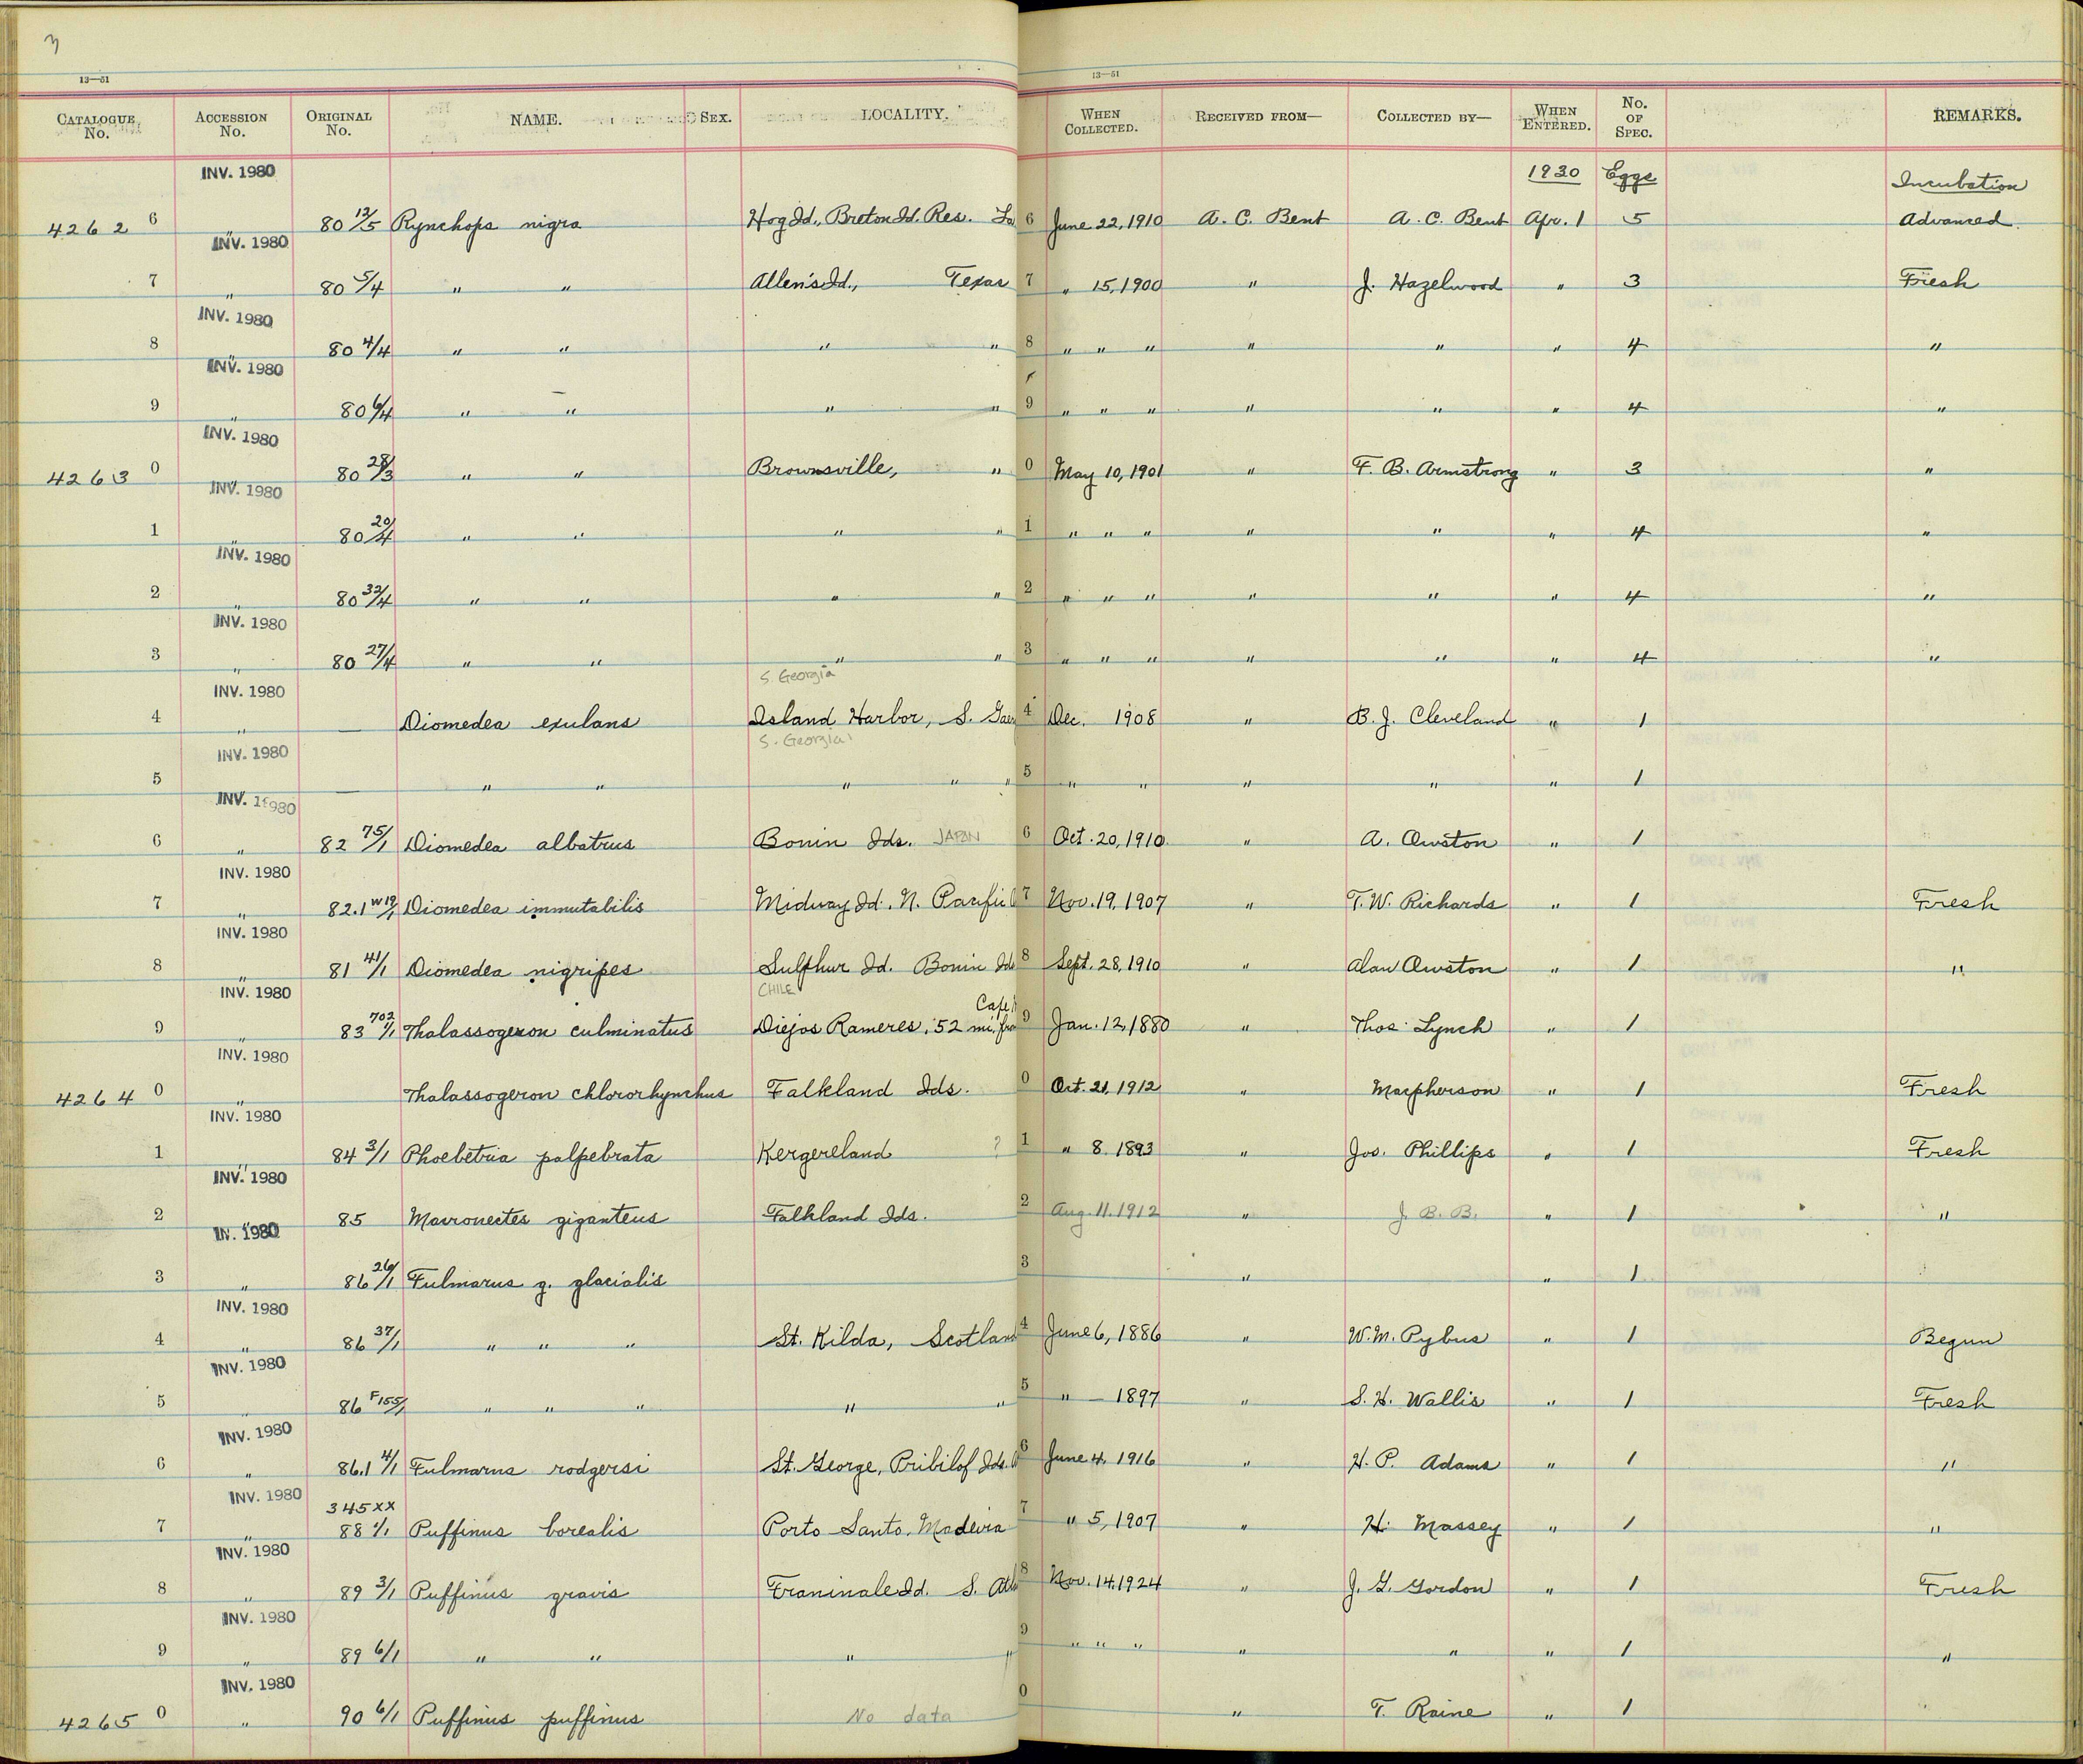 3
13—51 13—51
CATALOGUE No. ACCESSION No. ORIGINAL No. NAME. SEX. LOCALITY. WHEN COLLECTED. RECEIVED FROM— COLLECTED BY— WHEN ENTERED. No. OF SPEC. REMARKS.
INV. 1980 1930 Eggs Incubation
4262 6 " 80 12/5 Rynchops nigra Hog Id., Breton Id. Res. La 6 June 22, 1910 A. C. Bent A. C. Bent Apr. 1 5 Advanced.
INV. 1980
7 " 80 5/4 " " Allen's Id., Texas 7 " 15, 1900 " J. Hazelwood " 3 Fresh
INV. 1980
8 " 80 4/4 " " " " 8 " " " " " " 4 "
INV. 1980
9 " 80 6/4 " " " " 9 " " " " " " 4 "
INV. 1980
4263 0 80 28/3 " " Brownsville, " 0 May 10, 1901 " F. B. Armstrong " 3 "
INV. 1980
1 " 80 20/4 " " " " 1 " " " " " " 4 "
INV. 1980
2 " 80 32/4 " " " " 2 " " " " " " 4 "
INV. 1980
3 " 80 27/4 " " " " 3 " " " " " " 4 "
INV. 1980 S. Georgia
4 " — Diomedea exulans Island Harbor, S. 4 Dec. 1908 " B. J. Cleveland " 1
INV. 1980 S. Georgia
5 — " " " " " 5 " " " " " 1
INV. 1980
6 " 82 75/1 Diomedea albatrus Bonin Ids. JAPAN 6 Oct. 20, 1910 " A. Owston " 1
INV. 1980
7 " 82.1 W19/1 Diomedea immutabilis Midway Id. N. Pacific 7 Nov. 19, 1907 " T. W. Richards " 1 Fresh
INV. 1980
8 " 81 41/1 Diomedea nigripes Sulphur Id. Bonin Ids 8 Sept. 28, 1910 " Alan Owston " 1 "
INV. 1980 CHILE Cape
9 83 702/1 Thalassogeron culminatus Diejos Rameres, 52 mi. fro 9 Jan. 12, 1880 " Thos. Lynch " 1
INV. 1980
4264 0 " Thalassogeron chlororhynchus Falkland Ids. 0 Oct. 21, 1912 " Macpherson " 1 Fresh
INV. 1980
1 " 84 3/1 Phoebetria palpebrata Kergereland ? 1 " 8. 1893 " Jos. Phillips " 1 Fresh
INV. 1980
2 " 85 Macronectes giganteus Falkland Ids. 2 Aug. 11. 1912 " J. B. B. " 1 "
IN. 1980
3 " 86 26/1 Fulmarus g. glacialis 3 " " 1
INV. 1980
4 " 86 37/1 " " " St. Kilda, Scotland 4 June 6, 1886 " W. M. Pybus " 1 Begun
INV. 1980
5 " 86 F155/1 " " " " " 5 " — 1897 " S. H. Wallis " 1 Fresh
INV. 1980
6 " 86.1 4/1 Fulmarus rodgersi St. George, Pribilof Ids. 6 June 4, 1916 " H. P. Adams " 1 "
INV. 1980 345xx
7 " 88 1/1 Puffinus borealis Porto Santo, Madeira 7 " 5, 1907 " H. Massey " 1 "
INV. 1980
8 " 89 3/1 Puffinus gravis Id. S. Atl 8 Nov. 14, 1924 " J. G. Gordon " 1 Fresh
INV. 1980
9 " 89 6/1 " " " " 9 " " " " " " 1 "
INV. 1980
4265 0 " 90 6/1 Puffinus puffinus No data 0 " T. Raine " 1